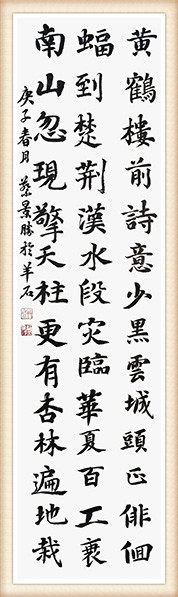 黃鶴樓前詩意少黑雲城頭正俳佪
蝠到楚荆漢水段灾臨華夏百工衰
南山忽現擎天柱更有杏林遍地栽
庚子春月 蔡景勝於羊石